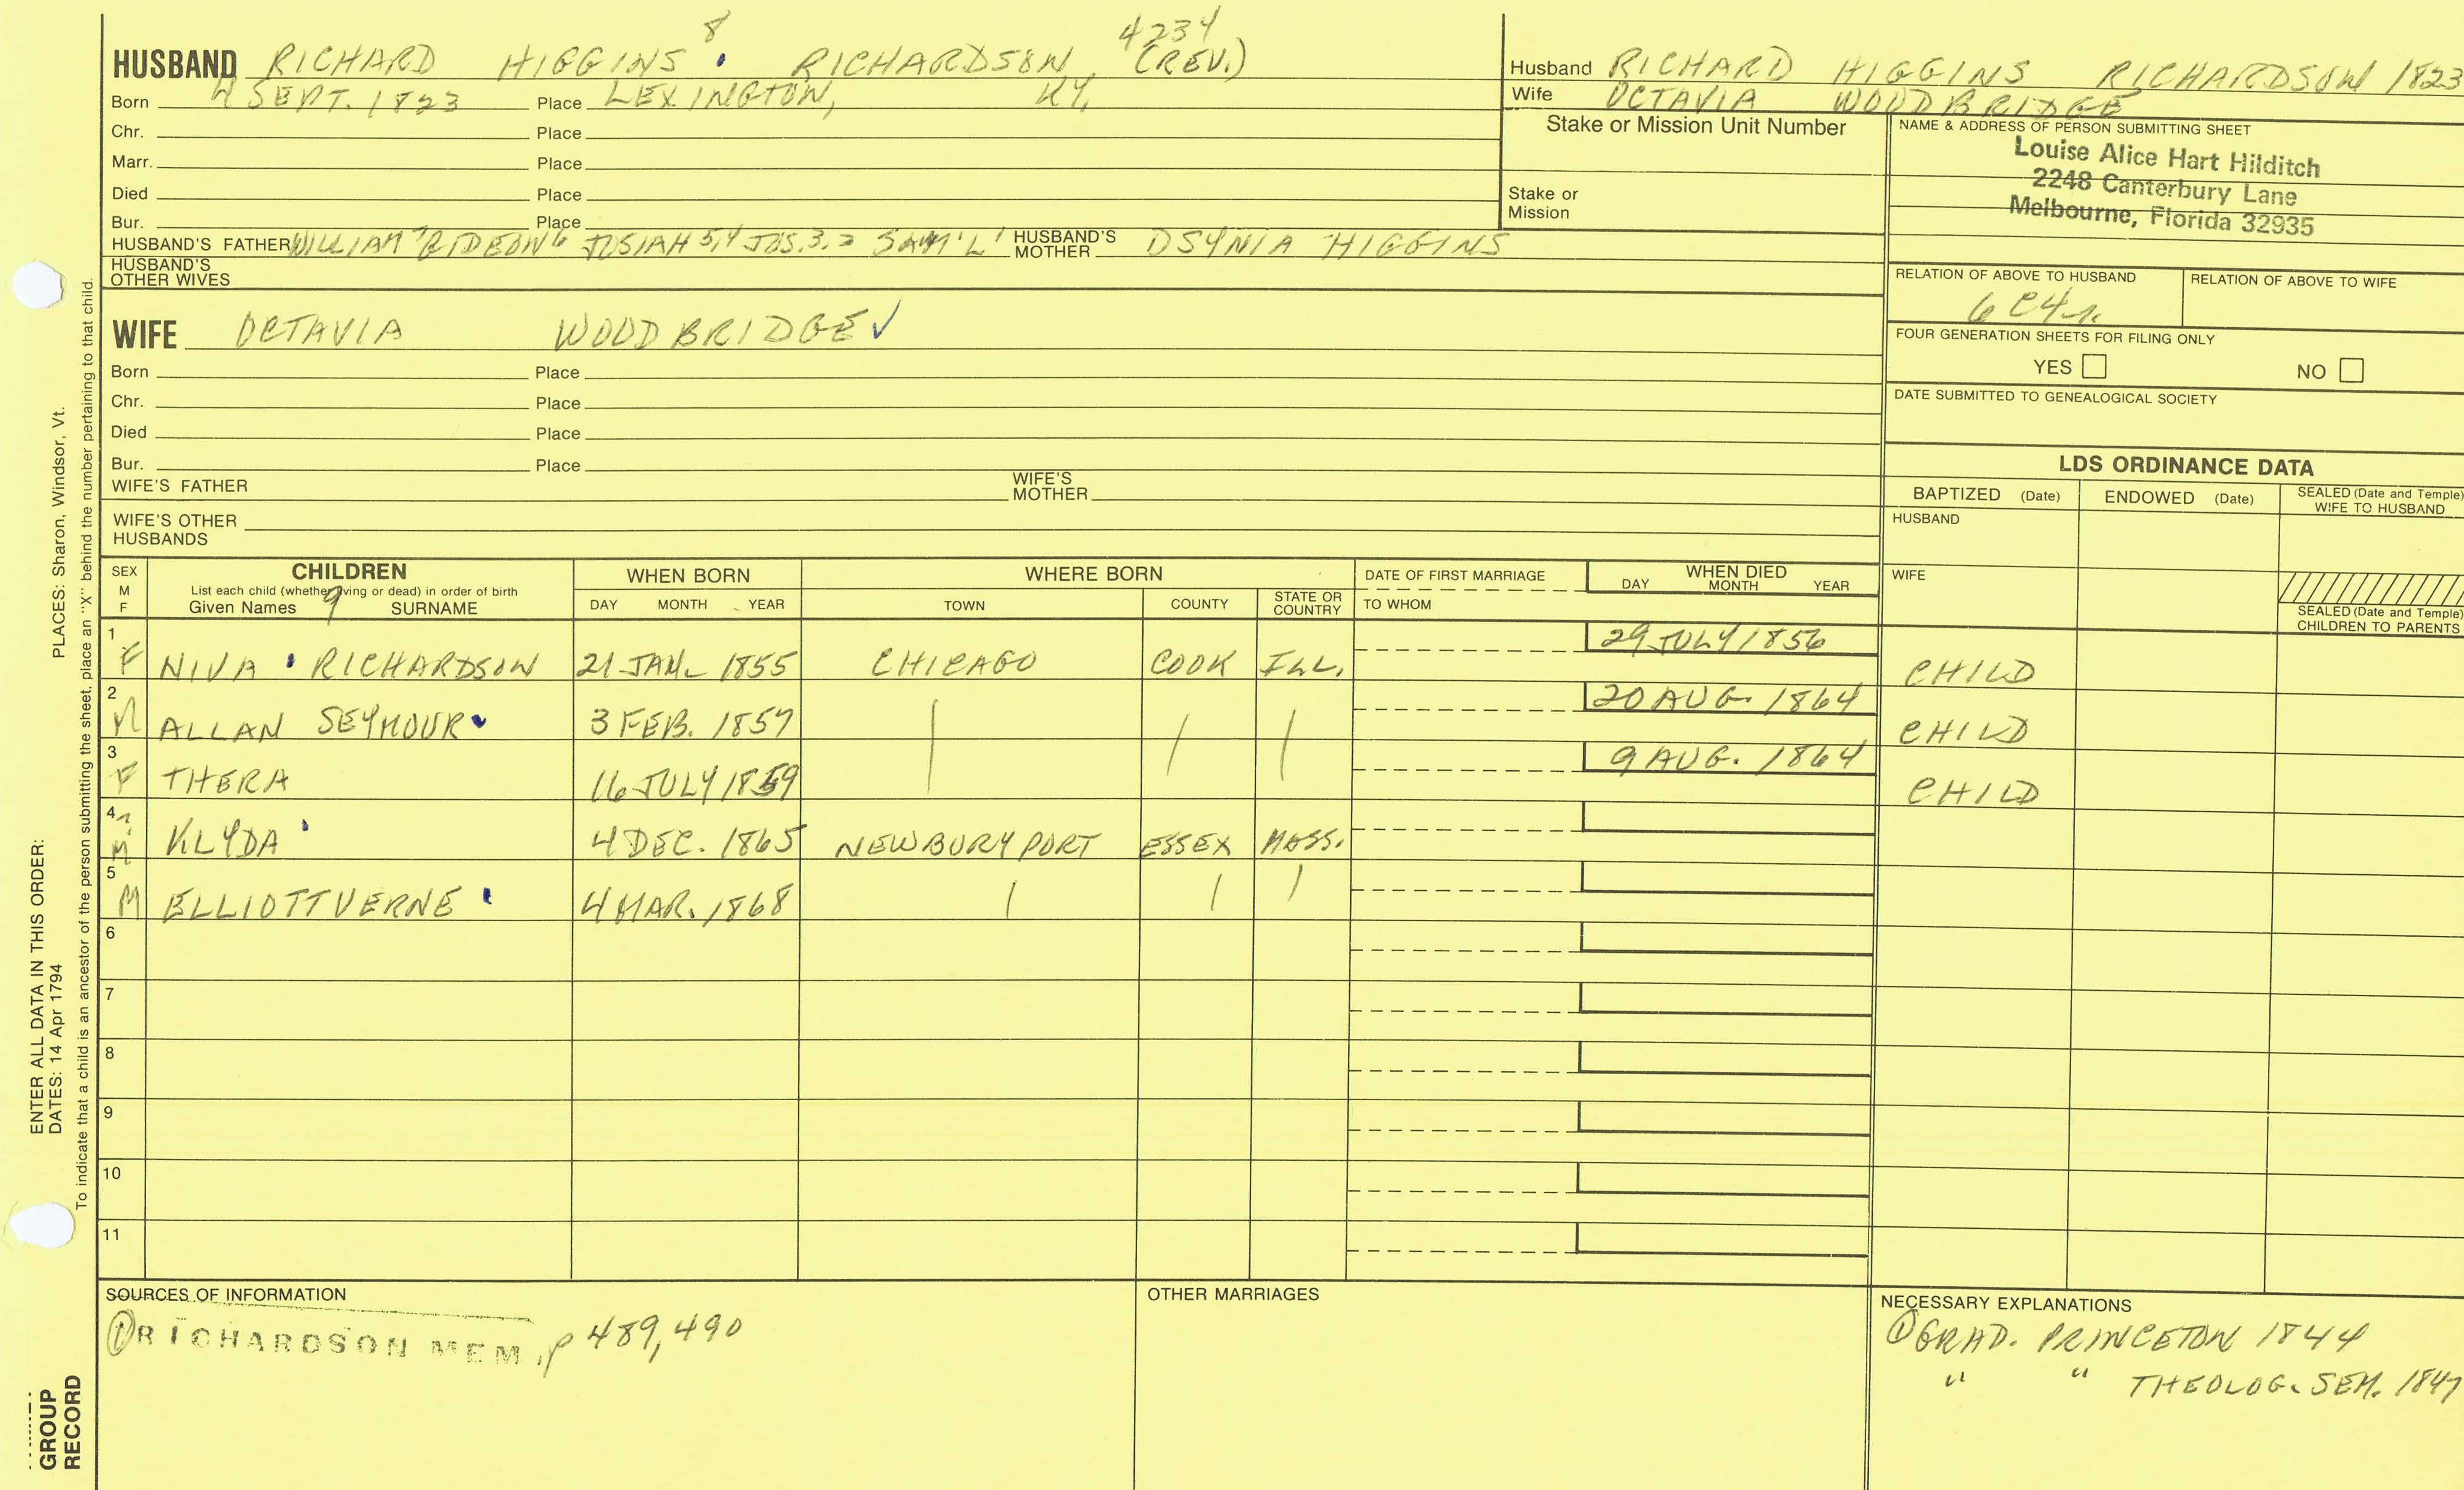 8
4234
HUSBAND RICHARD HIGGINS RICHARDSON (REV.)
Born 4 SEPT. 1823 Place LEXINGTON, KY.
Chr. Place
Marr. Place
Died Place
Bur. Place
HUSBAND'S FATHER WILLIAM 7 GIDEON 6 JOSIAH 5,4 JOS. 3,2 SAM'L 1 HUSBAND'S MOTHER DSYNIA HIGGINS
HUSBAND'S OTHER WIVES
WIFE OCTAVIA WOODBRIDGE ✓
Born Place
Chr. Place
Died Place
Bur. Place
WIFE'S FATHER WIFE'S MOTHER
WIFE'S OTHER HUSBANDS
Husband RICHARD HIGGINS RICHARDSON 1823
Wife OCTAVIA WOODBRIDGE
Stake or Mission Unit Number
Stake or Mission
NAME & ADDRESS OF PERSON SUBMITTING SHEET
Louise Alice Hart Hilditch
2248 Canterbury Lane
Melbourne, Florida 32935
RELATION OF ABOVE TO HUSBAND RELATION OF ABOVE TO WIFE
6C4r.
FOUR GENERATION SHEETS FOR FILING ONLY
YES NO
DATE SUBMITTED TO GENEALOGICAL SOCIETY
LDS ORDINANCE DATA
BAPTIZED (Date) ENDOWED (Date) SEALED (Date and Temple) WIFE TO HUSBAND
HUSBAND
WIFE
SEALED (Date and Temple) CHILDREN TO PARENTS
SEX M F
CHILDREN
List each child (whether living or dead) in order of birth
Given Names 9 SURNAME
WHEN BORN
DAY MONTH YEAR
WHERE BORN
TOWN COUNTY STATE OR COUNTRY
DATE OF FIRST MARRIAGE
TO WHOM
WHEN DIED
DAY MONTH YEAR
1 F NIVA RICHARDSON 21 JAN. 1855 CHICAGO COOK ILL. 29 JULY 1856 CHILD
2 M ALLAN SEYMOUR 3 FEB. 1857 | | | 20 AUG. 1864 CHILD
3 F THERA 16 JULY 1859 9 AUG. 1864 CHILD
4 M KLYDA 4 DEC. 1865 NEWBURYPORT ESSEX MASS.
5 M ELLIOTT VERNE 4 MAR. 1868 | | |
6
7
8
9
10
11
SOURCES OF INFORMATION
① RICHARDSON MEM. p 489, 490
OTHER MARRIAGES
NECESSARY EXPLANATIONS
① GRAD. PRINCETON 1844
" " THEOLOG. SEM. 1847
PLACES: Sharon, Windsor, Vt.
ENTER ALL DATA IN THIS ORDER:
DATES: 14 Apr 1794
To indicate that a child is an ancestor of the person submitting the sheet, place an "X" behind the number pertaining to that child.
GROUP
RECORD